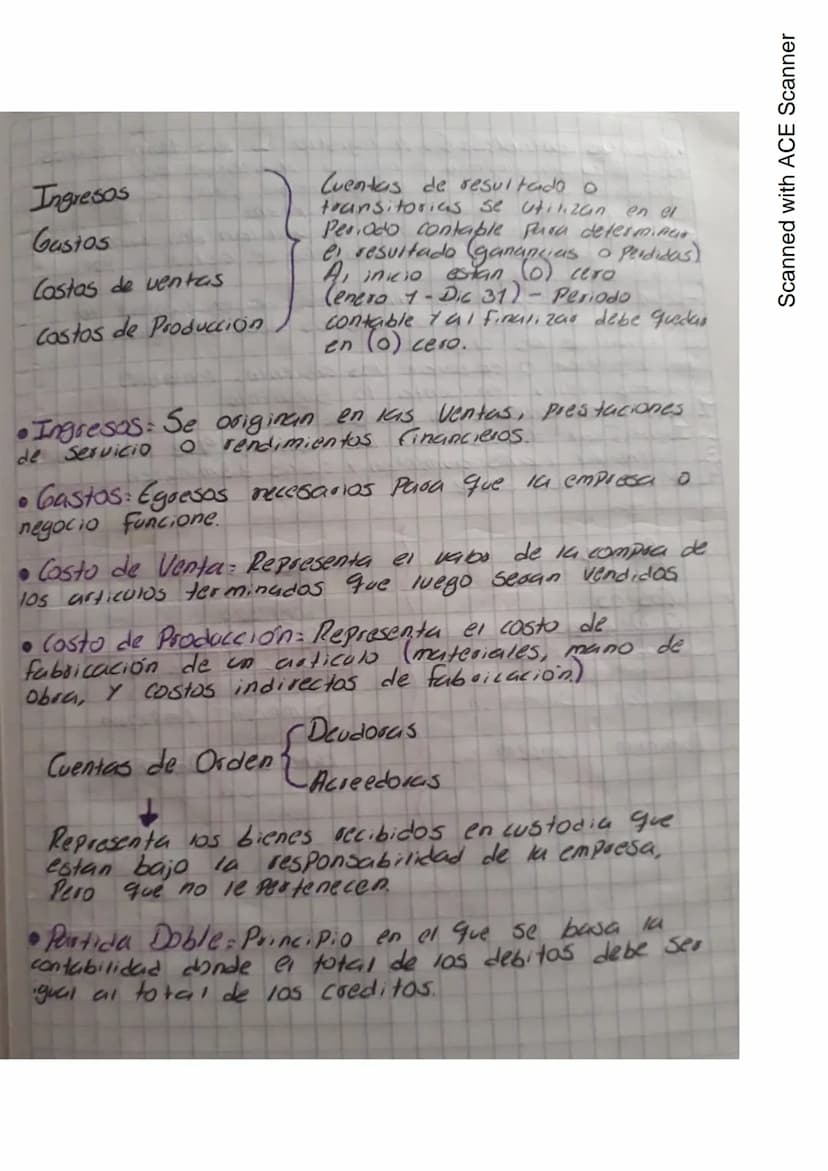 Ingresos
Gastos
Costos de ventas
Costos de Producción
Cuentas de resultado o
transitorias se utilizan en el
Periodo contable para determinar
el resultado (ganancias o perdidas)
Al inicio estan (0) cero
(enero 1 - Dic 31) - Periodo
contable y al finalizar debe quedar
en (0) cero.
• Ingresos: Se originan en las Ventas, prestaciones
de servicio o rendimientos financieros.
• Gastos: Egresos necesarios para que la empresa o
negocio funcione.
• Costo de Venta: Representa el valor de la compra de
los articulos terminados que luego seran vendidos
• Costo de Producción: Representa el costo de
fabricación de un articulo (materiales, mano de
obra, y costos indirectos de fabricación)
Cuentas de Orden
Deudoras
Acreedoras
Representa los bienes recibidos en custodia que
estan bajo la responsabilidad de la empresa,
Pero que no le pertenecen.
• Partida Doble: Principio en el que se basa la
contabilidad donde el total de los debitos debe ser
igual al total de los creditos.
Scanned with ACE Scanner